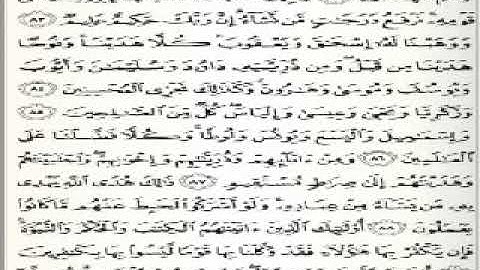 قَوْمِهِۦ نَرْفَعُ دَرَجَٰتٍ مَّن نَّشَآءُ إِنَّ رَبَّكَ حَكِيمٌ عَلِيمٌ ٨٣
وَوَهَبْنَا لَهُۥٓ إِسْحَٰقَ وَيَعْقُوبَ كُلًّا هَدَيْنَا وَنُوحًا
هَدَيْنَا مِن قَبْلُ وَمِن ذُرِّيَّتِهِۦ دَاوُۥدَ وَسُلَيْمَٰنَ وَأَيُّوبَ
وَيُوسُفَ وَمُوسَىٰ وَهَٰرُونَ وَكَذَٰلِكَ نَجْزِى ٱلْمُحْسِنِينَ ٨٤
وَزَكَرِيَّا وَيَحْيَىٰ وَعِيسَىٰ وَإِلْيَاسَ كُلٌّ مِّنَ ٱلصَّٰلِحِينَ ٨٥
وَإِسْمَٰعِيلَ وَٱلْيَسَعَ وَيُونُسَ وَلُوطًا وَكُلًّا فَضَّلْنَا عَلَى
ٱلْعَٰلَمِينَ ٨٦ وَمِنْ ءَابَآئِهِمْ وَذُرِّيَّٰتِهِمْ وَإِخْوَٰنِهِمْ وَٱجْتَبَيْنَٰهُمْ
وَهَدَيْنَٰهُمْ إِلَىٰ صِرَٰطٍ مُّسْتَقِيمٍ ٨٧ ذَٰلِكَ هُدَى ٱللَّهِ يَهْدِى
بِهِۦ مَن يَشَآءُ مِنْ عِبَادِهِۦ وَلَوْ أَشْرَكُوا۟ لَحَبِطَ عَنْهُم مَّا كَانُوا۟
يَعْمَلُونَ ٨٨ أُو۟لَٰٓئِكَ ٱلَّذِينَ ءَاتَيْنَٰهُمُ ٱلْكِتَٰبَ وَٱلْحُكْمَ وَٱلنُّبُوَّةَ
فَإِن يَكْفُرْ بِهَا هَٰٓؤُلَآءِ فَقَدْ وَكَّلْنَا بِهَا قَوْمًا لَّيْسُوا۟ بِهَا بِكَٰفِرِينَ